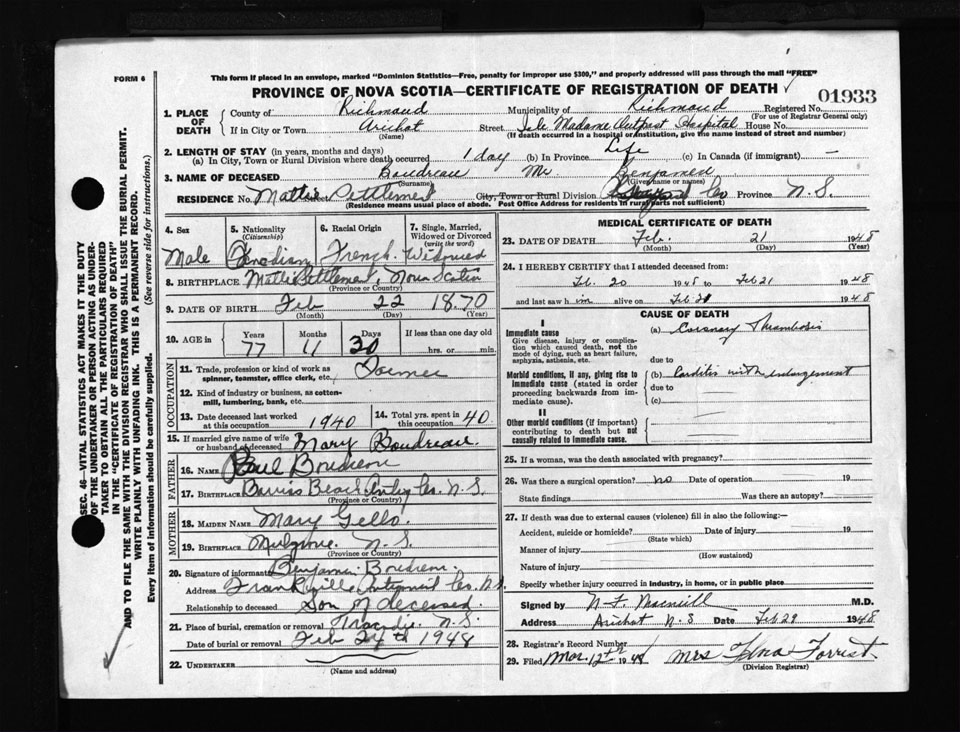 FORM 6
This form if placed in an envelope, marked "Dominion Statistics—Free, penalty for improper use $300," and properly addressed will pass through the mail "FREE"
PROVINCE OF NOVA SCOTIA—CERTIFICATE OF REGISTRATION OF DEATH
01933
1. PLACE OF DEATH
County of Richmond Municipality of Richmond Registered No.
(For use of Registrar General only)
If in City or Town Arichat Street Isle Madame Outpost Hospital House No.
(Name) (If death occurred in a hospital or institution, give the name instead of street and number)
2. LENGTH OF STAY (in years, months and days)
(a) In City, Town or Rural Division where death occurred 1 day (b) In Province Life (c) In Canada (if immigrant) —
3. NAME OF DECEASED Boudreau Mr Benjamen
(Surname) (Given name or names)
RESIDENCE No. Mattie Settlement City, Town or Rural Division Co Province N.S.
(Residence means usual place of abode. Post Office Address for residents in rural parts not sufficient)
4. Sex
Male
5. Nationality
(Citizenship)
Canadian
6. Racial Origin
French
7. Single, Married, Widowed or Divorced
(write the word)
Widowed
8. BIRTHPLACE Mattie Settlement, Nova Scotia
(Province or Country)
9. DATE OF BIRTH Feb 22 1870
(Month) (Day) (Year)
10. AGE in
Years Months Days If less than one day old
77 11 30 hrs. or min.
OCCUPATION
11. Trade, profession or kind of work as spinner, teamster, office clerk, etc.
12. Kind of industry or business, as cotten-mill, lumbering, bank, etc.
13. Date deceased last worked at this occupation 1940
14. Total yrs. spent in this occupation 40
15. If married give name of wife or husband of deceased Mary Boudreau.
FATHER
16. NAME Paul Boudreau
17. BIRTHPLACE Beach Co. N.S.
(Province or Country)
MOTHER
18. MAIDEN NAME Mary Gello.
19. BIRTHPLACE Mulgrave. N.S.
(Province or Country)
20. Signature of informant Benjamin Boudreau
Address Frankville Co. N.S.
Relationship to deceased Son of deceased.
21. Place of burial, cremation or removal Tracadie. N.S.
Date of burial or removal Feb 24th 1948
22. UNDERTAKER
(Name and address)
MEDICAL CERTIFICATE OF DEATH
23. DATE OF DEATH Feb. 21 1948
(Month) (Day) (Year)
24. I HEREBY CERTIFY that I attended deceased from:
Feb. 20 1948 to Feb 21 1948
and last saw him alive on Feb 21 1948
CAUSE OF DEATH
I
Immediate cause
Give disease, injury or complication which caused death, not the mode of dying, such as heart failure, asphyxia, asthenia, etc.
(a) Coronary Thrombosis
due to
Morbid conditions, if any, giving rise to immediate cause (stated in order proceeding backwards from immediate cause).
(b) Carditis with enlargement
due to
(c)
II
Other morbid conditions (if important) contributing to death but not causally related to immediate cause.
25. If a woman, was the death associated with pregnancy?
26. Was there a surgical operation? no Date of operation 19
State findings Was there an autopsy?
27. If death was due to external causes (violence) fill in also the following:—
Accident, suicide or homicide? Date of injury 19
(State which)
Manner of injury
(How sustained)
Nature of injury
Specify whether injury occurred in industry, in home, or in public place
Signed by M.D.
Address Arichat N S Date Feb 29 1948
28. Registrar's Record Number
29. Filed Mar. 12th 1948 Mrs Forrest
(Division Registrar)
SEC. 46—VITAL STATISTICS ACT MAKES IT THE DUTY
OF THE UNDERTAKER OR PERSON ACTING AS UNDER-
TAKER TO OBTAIN ALL THE PARTICULARS REQUIRED
IN THE "CERTIFICATE OF REGISTRATION OF DEATH"
AND TO FILE THE SAME WITH THE DIVISION REGISTRAR WHO SHALL ISSUE THE BURIAL PERMIT.
WRITE PLAINLY WITH UNFADING INK. THIS IS A PERMANENT RECORD.
Every item of information should be carefully supplied. (See reverse side for instructions.)